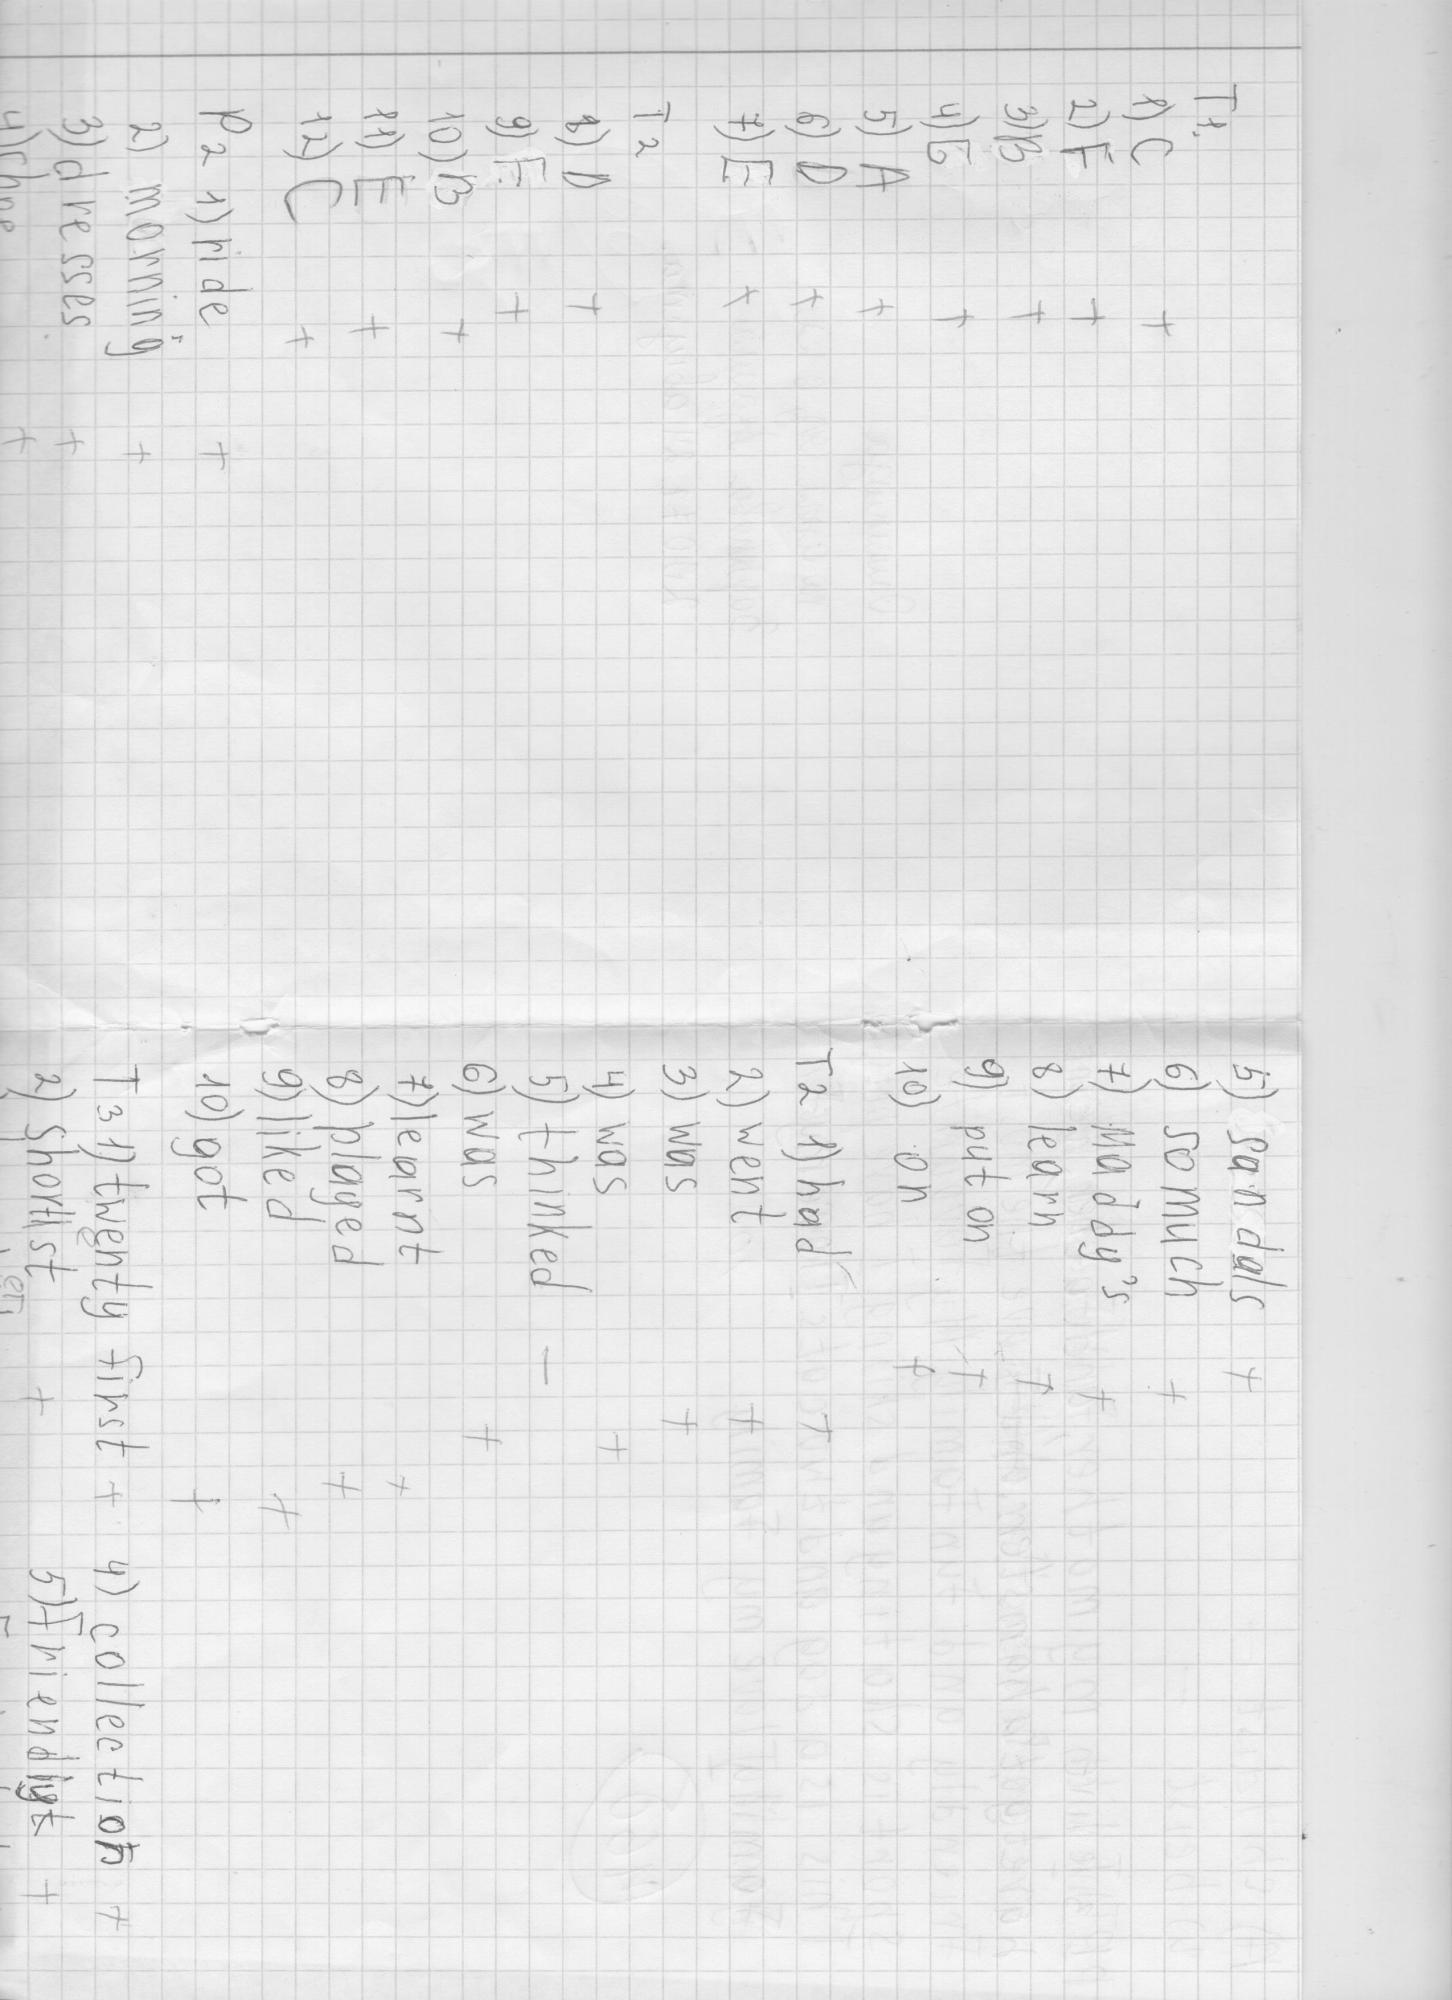 T1.
1) C +
2) F +
3) B +
4) G +
5) A +
6) D +
7) E +
T2
8) D +
9) F +
10) B +
11) E +
12) C +
P2 1) ride +
2) morning +
3) dresses +
5) sandals +
6) so much +
7) Maddy's +
8) learn +
9) put on +
10) on +
T2 1) had +
2) went +
3) was +
4) was +
5) thinked -
6) was +
7) learnt +
8) played +
9) liked +
10) got +
T3 1) twenty first + 4) collection +
2) Shortist + 5) friendlyt +